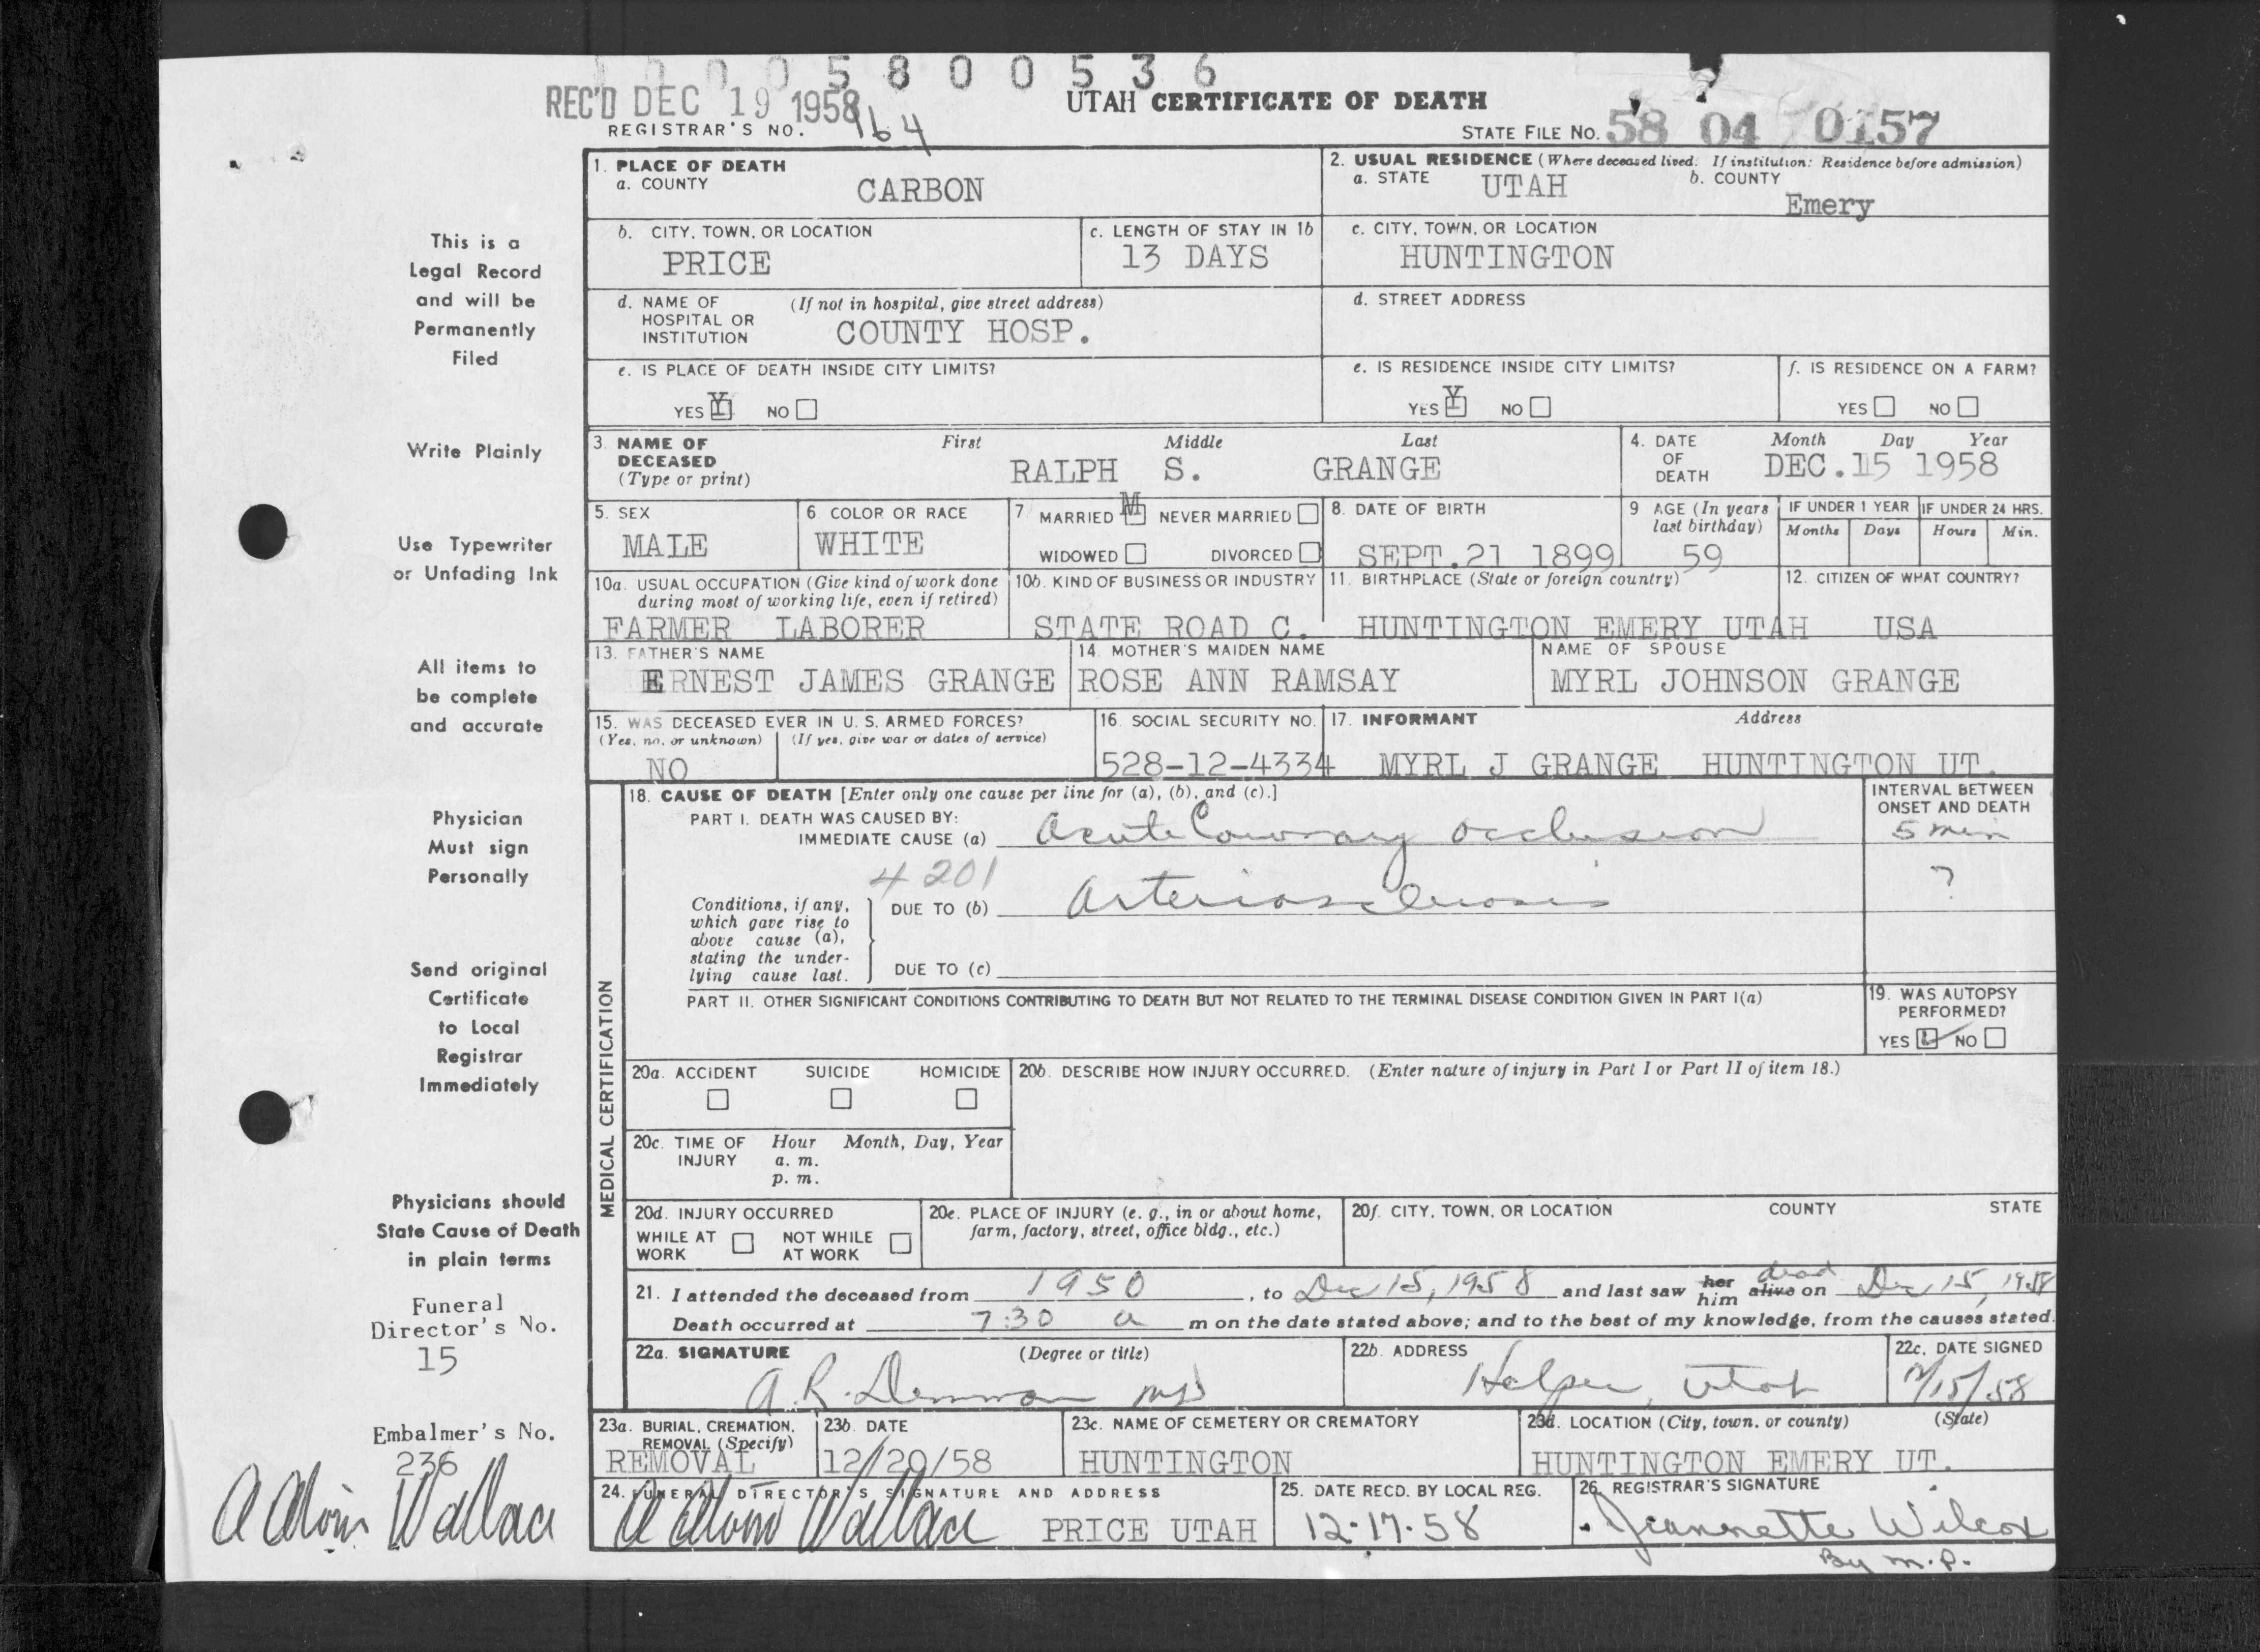 1 0 0 0 5 8 0 0 5 3 6
REC'D DEC 19 1958
UTAH CERTIFICATE OF DEATH
REGISTRAR'S NO. 164
STATE FILE NO. 58 04 0157
1. PLACE OF DEATH
a. COUNTY CARBON
2. USUAL RESIDENCE (Where deceased lived. If institution: Residence before admission)
a. STATE UTAH b. COUNTY Emery
b. CITY, TOWN, OR LOCATION PRICE
c. LENGTH OF STAY IN 1b 13 DAYS
c. CITY, TOWN, OR LOCATION HUNTINGTON
d. NAME OF HOSPITAL OR INSTITUTION (If not in hospital, give street address) COUNTY HOSP.
d. STREET ADDRESS
e. IS PLACE OF DEATH INSIDE CITY LIMITS?
YES Y NO
e. IS RESIDENCE INSIDE CITY LIMITS?
YES Y NO
f. IS RESIDENCE ON A FARM?
YES NO
3. NAME OF DECEASED (Type or print)
First Middle Last
RALPH S. GRANGE
4. DATE OF DEATH Month Day Year
DEC. 15 1958
5. SEX MALE
6. COLOR OR RACE WHITE
7. MARRIED M NEVER MARRIED
WIDOWED DIVORCED
8. DATE OF BIRTH SEPT. 21 1899
9. AGE (In years last birthday) 59
IF UNDER 1 YEAR Months Days
IF UNDER 24 HRS. Hours Min.
10a. USUAL OCCUPATION (Give kind of work done during most of working life, even if retired)
FARMER LABORER
10b. KIND OF BUSINESS OR INDUSTRY
STATE ROAD C.
11. BIRTHPLACE (State or foreign country)
HUNTINGTON EMERY UTAH
12. CITIZEN OF WHAT COUNTRY?
USA
13. FATHER'S NAME
ERNEST JAMES GRANGE
14. MOTHER'S MAIDEN NAME
ROSE ANN RAMSAY
NAME OF SPOUSE
MYRL JOHNSON GRANGE
15. WAS DECEASED EVER IN U.S. ARMED FORCES?
(Yes, no, or unknown) (If yes, give war or dates of service)
NO
16. SOCIAL SECURITY NO.
528-12-4334
17. INFORMANT Address
MYRL J GRANGE HUNTINGTON UT.
MEDICAL CERTIFICATION
18. CAUSE OF DEATH [Enter only one cause per line for (a), (b), and (c).]
INTERVAL BETWEEN ONSET AND DEATH
PART I. DEATH WAS CAUSED BY:
IMMEDIATE CAUSE (a) Acute Coronary occlusion 5 min
4201
Conditions, if any, which gave rise to above cause (a), stating the underlying cause last.
DUE TO (b) Arteriosclerosis ?
DUE TO (c)
PART II. OTHER SIGNIFICANT CONDITIONS CONTRIBUTING TO DEATH BUT NOT RELATED TO THE TERMINAL DISEASE CONDITION GIVEN IN PART I(a)
19. WAS AUTOPSY PERFORMED?
YES NO
20a. ACCIDENT SUICIDE HOMICIDE
20b. DESCRIBE HOW INJURY OCCURRED. (Enter nature of injury in Part I or Part II of item 18.)
20c. TIME OF INJURY Hour Month, Day, Year
a. m.
p. m.
20d. INJURY OCCURRED
WHILE AT WORK NOT WHILE AT WORK
20e. PLACE OF INJURY (e. g., in or about home, farm, factory, street, office bldg., etc.)
20f. CITY, TOWN, OR LOCATION COUNTY STATE
21. I attended the deceased from 1950, to Dec 15, 1958 and last saw her him alive dead on Dec 15, 1958
Death occurred at 7:30 a m on the date stated above; and to the best of my knowledge, from the causes stated.
22a. SIGNATURE (Degree or title)
A. R. Demman MD
22b. ADDRESS
Helper, Utah
22c. DATE SIGNED
12/15/58
23a. BURIAL, CREMATION, REMOVAL (Specify)
REMOVAL
23b. DATE
12/20/58
23c. NAME OF CEMETERY OR CREMATORY
HUNTINGTON
23d. LOCATION (City, town, or county) (State)
HUNTINGTON EMERY UT.
24. FUNERAL DIRECTOR'S SIGNATURE AND ADDRESS
A Alvin Wallace PRICE UTAH
25. DATE RECD. BY LOCAL REG.
12-17-58
26. REGISTRAR'S SIGNATURE
Jeannette Wilcox
By M.P.
This is a
Legal Record
and will be
Permanently
Filed
Write Plainly
Use Typewriter
or Unfading Ink
All items to
be complete
and accurate
Physician
Must sign
Personally
Send original
Certificate
to Local
Registrar
Immediately
Physicians should
State Cause of Death
in plain terms
Funeral
Director's No.
15
Embalmer's No.
236
A Alvin Wallace